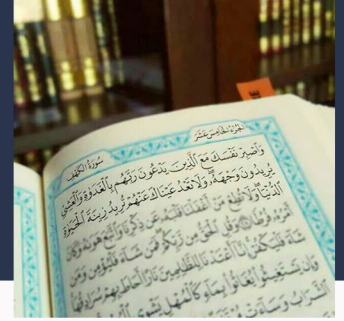 الجزء الخامس عشر
سورة الكهف
واصبر نفسك مع الذين يدعون ربهم بالغدوة والعشي
يريدون وجهه ولا تعد عيناك عنهم تريد زينة الحيوة
الدنيا ولا تطع من أغفلنا قلبه عن ذكرنا واتبع هوىه وكان
أمره فرطا وقل الحق من ربكم فمن شاء فليؤمن ومن
شاء فليكفر إنا أعتدنا للظالمين نارا أحاط بهم سرادقها
وإن يستغيثوا يغاثوا بماء كالمهل يشوي
الشراب وساءت